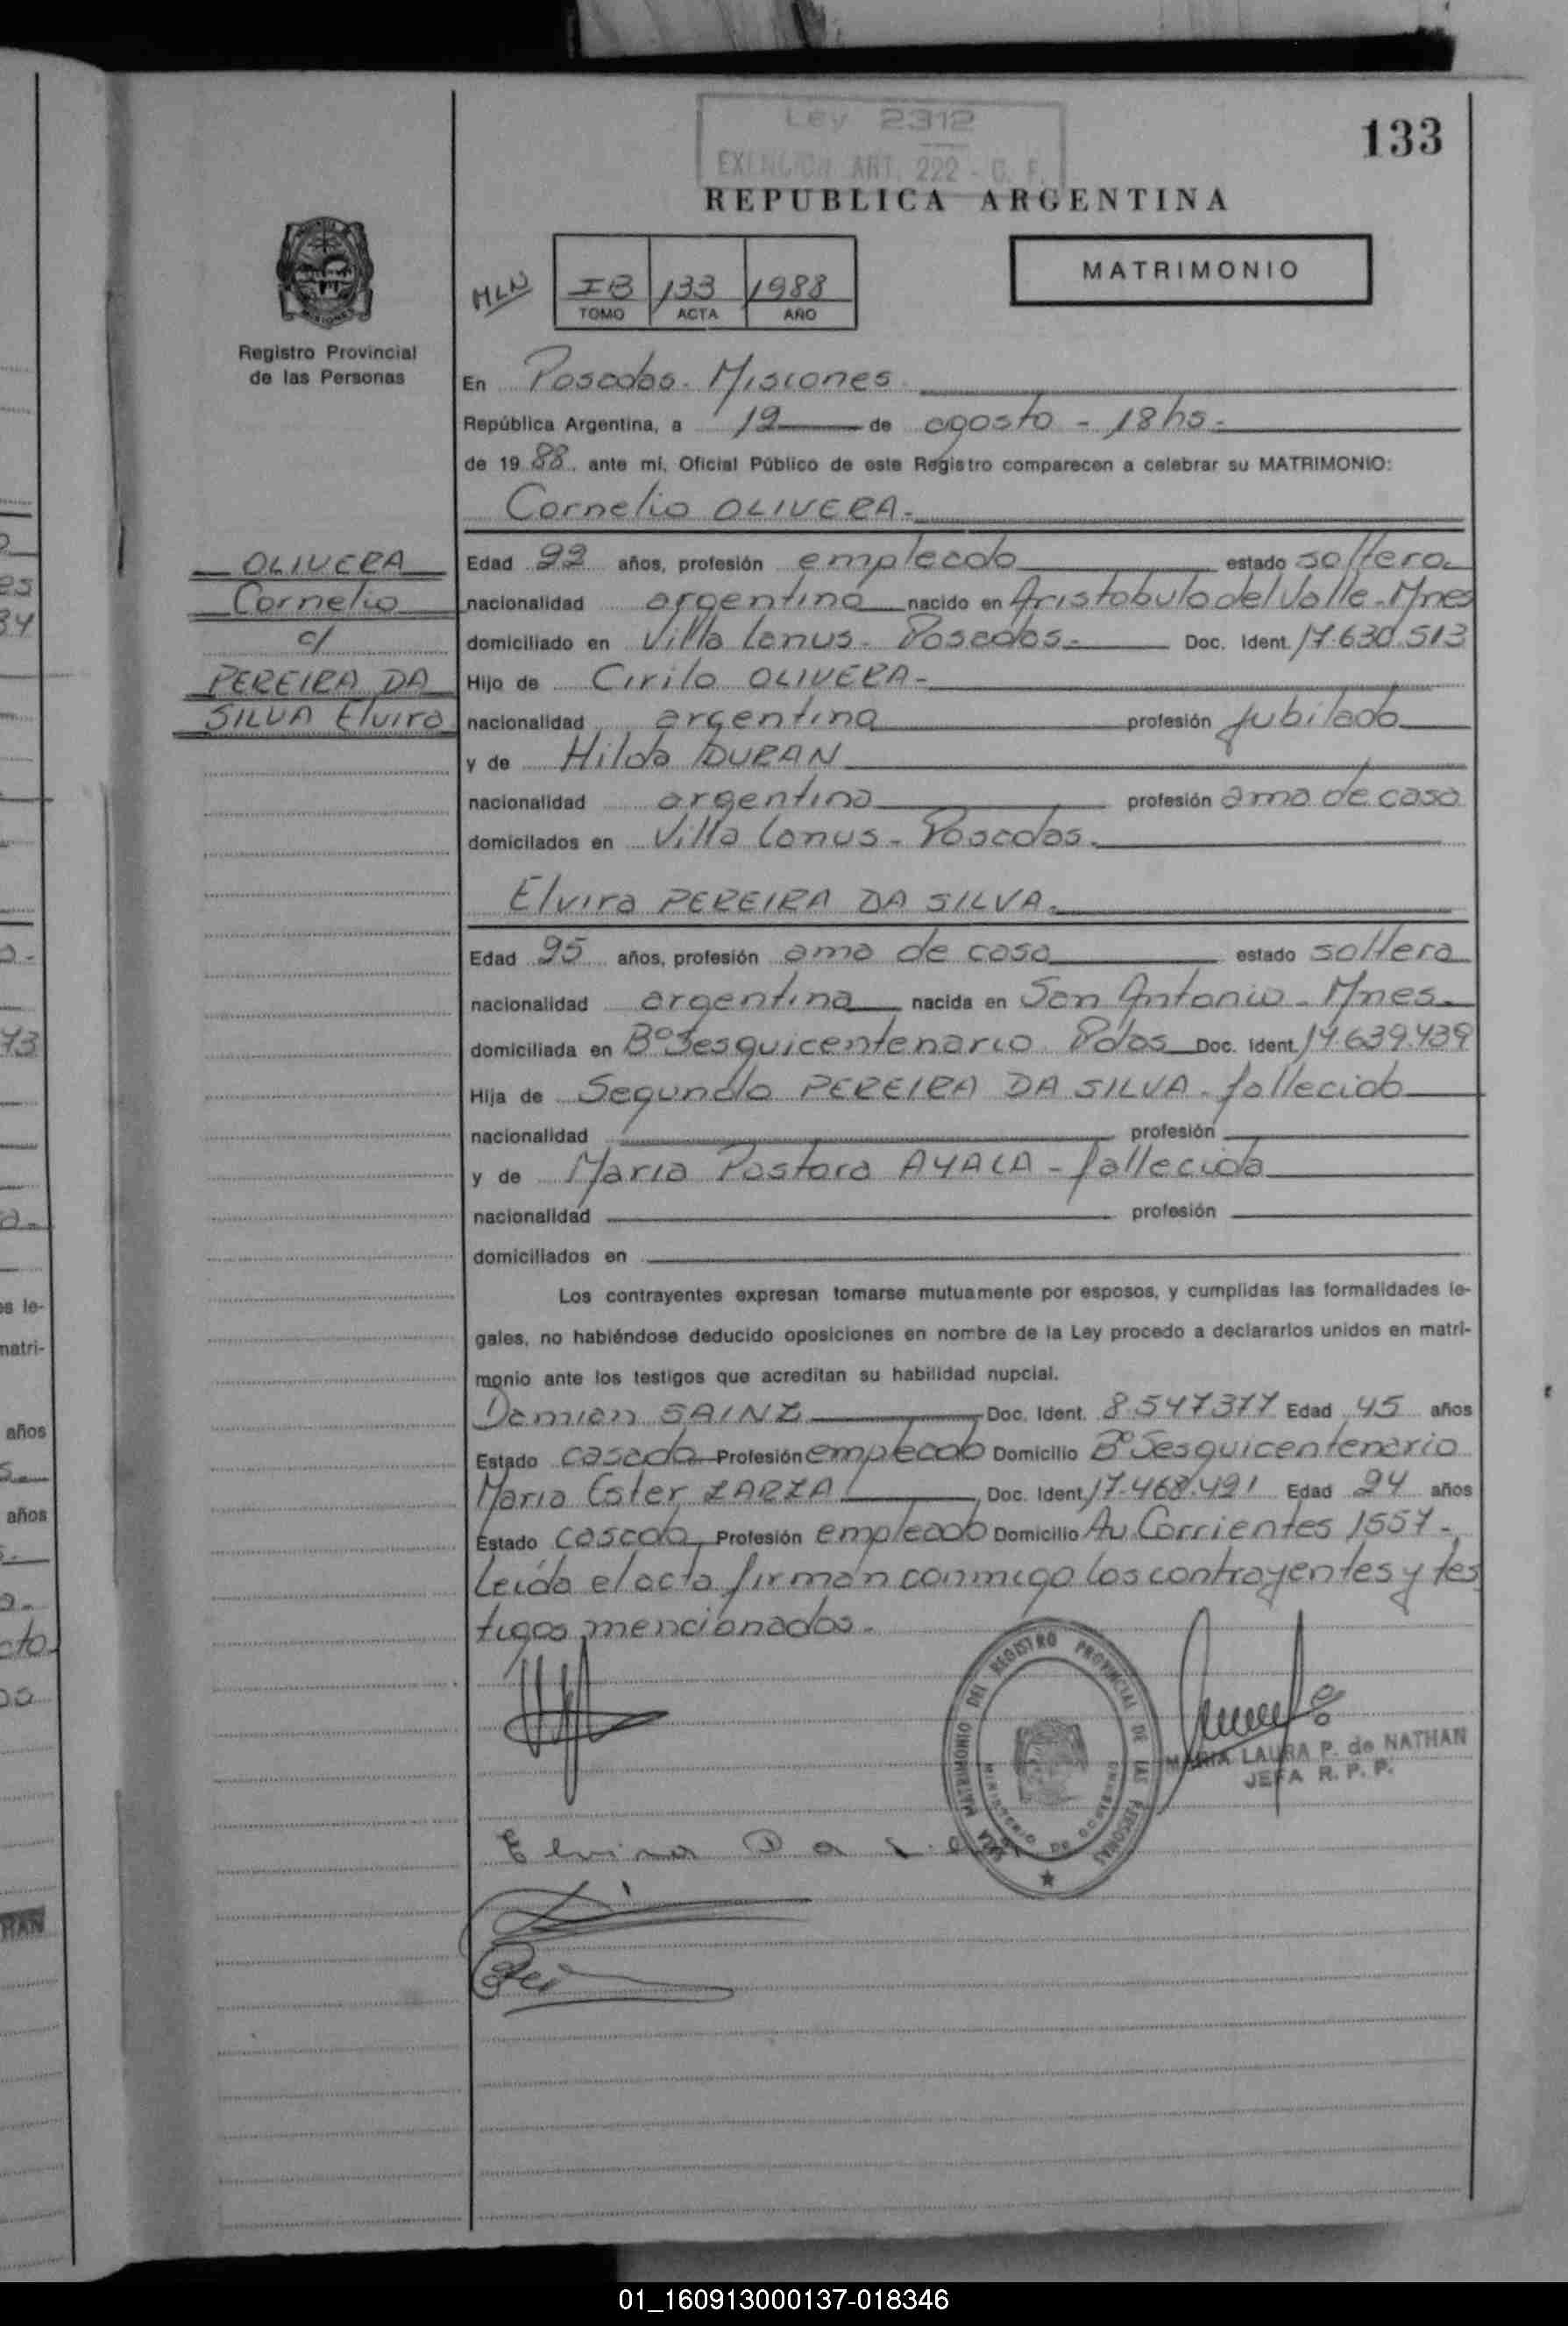 Ley 2312
EXENCION ART. 222 - C. F.
133
REPUBLICA ARGENTINA
MATRIMONIO
MLN
IB 133 1988
TOMO ACTA AÑO
Registro Provincial
de las Personas
En Posadas - Misiones
República Argentina, a 12 de agosto - 18 hs -
de 19 88, ante mí, Oficial Público de este Registro comparecen a celebrar su MATRIMONIO:
Cornelio OLIVERA -
OLIVERA
Cornelio
c/
PEREIRA DA
SILVA Elvira
Edad 22 años, profesión empleado estado soltero
nacionalidad argentina nacido en Aristobulo del Valle - Mnes
domiciliado en Villa Lanus - Posadas - Doc. Ident. 17.630.513
Hijo de Cirilo OLIVERA -
nacionalidad argentina profesión jubilado
y de Hilda DURAN
nacionalidad argentina profesión ama de casa
domicilados en Villa Lanus - Posadas.
Elvira PEREIRA DA SILVA.
Edad 25 años, profesión ama de casa estado soltera
nacionalidad argentina nacida en San Antonio - Mnes.
domiciliada en Bº Sesquicentenario Pdas Doc. Ident. 14.639.439
Hija de Segundo PEREIRA DA SILVA - fallecido
nacionalidad profesión
y de Maria Pastora AYALA - fallecida
nacionalidad profesión
domiciliados en
Los contrayentes expresan tomarse mutuamente por esposos, y cumplidas las formalidades le-
gales, no habiéndose deducido oposiciones en nombre de la Ley procedo a declararlos unidos en matri-
monio ante los testigos que acreditan su habilidad nupcial.
Damian SAINZ Doc. Ident. 8.547377 Edad 45 años
Estado casado Profesión empleado Domicilio Bº Sesquicentenario
Maria Ester ZARZA Doc. Ident. 17.468.421 Edad 24 años
Estado casada Profesión empleado Domicilio Av. Corrientes 1557 -
Leída el acta firman conmigo los contrayentes y tes
tigos mencionados.
MATRIMONIO DEL REGISTRO PROVINCIAL DE LAS PERSONAS
MINISTERIO DE GOBIERNO
MARIA LAURA P. de NATHAN
JEFA R. P. P.
Elvira Da
01_160913000137-018346